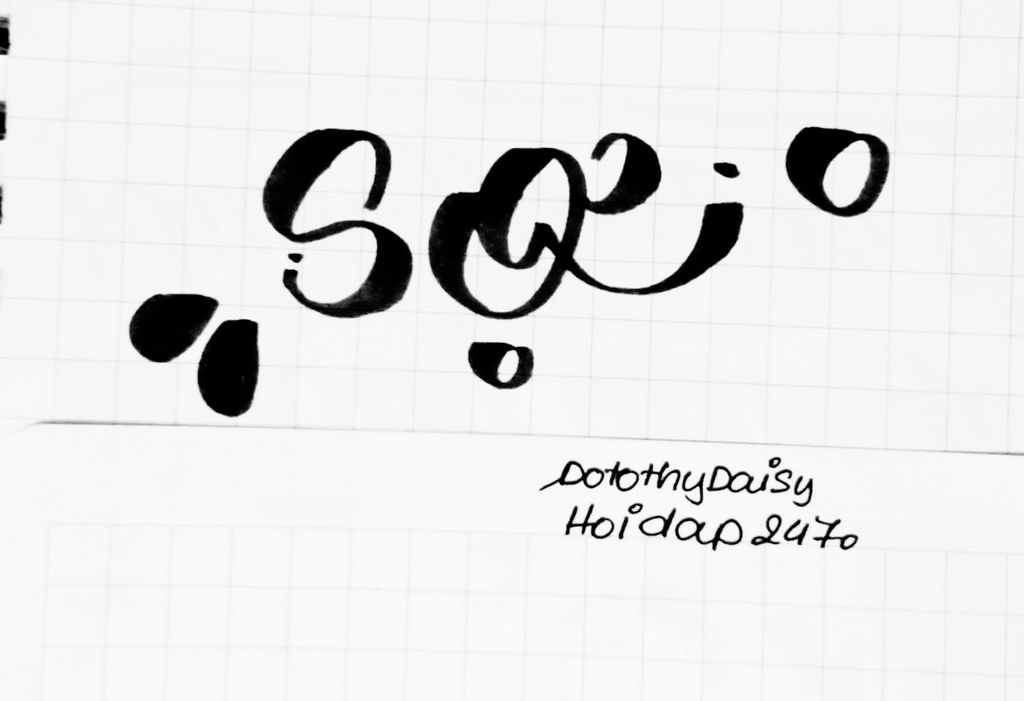 Sợi
DorothyDaisy
Hoidap247.